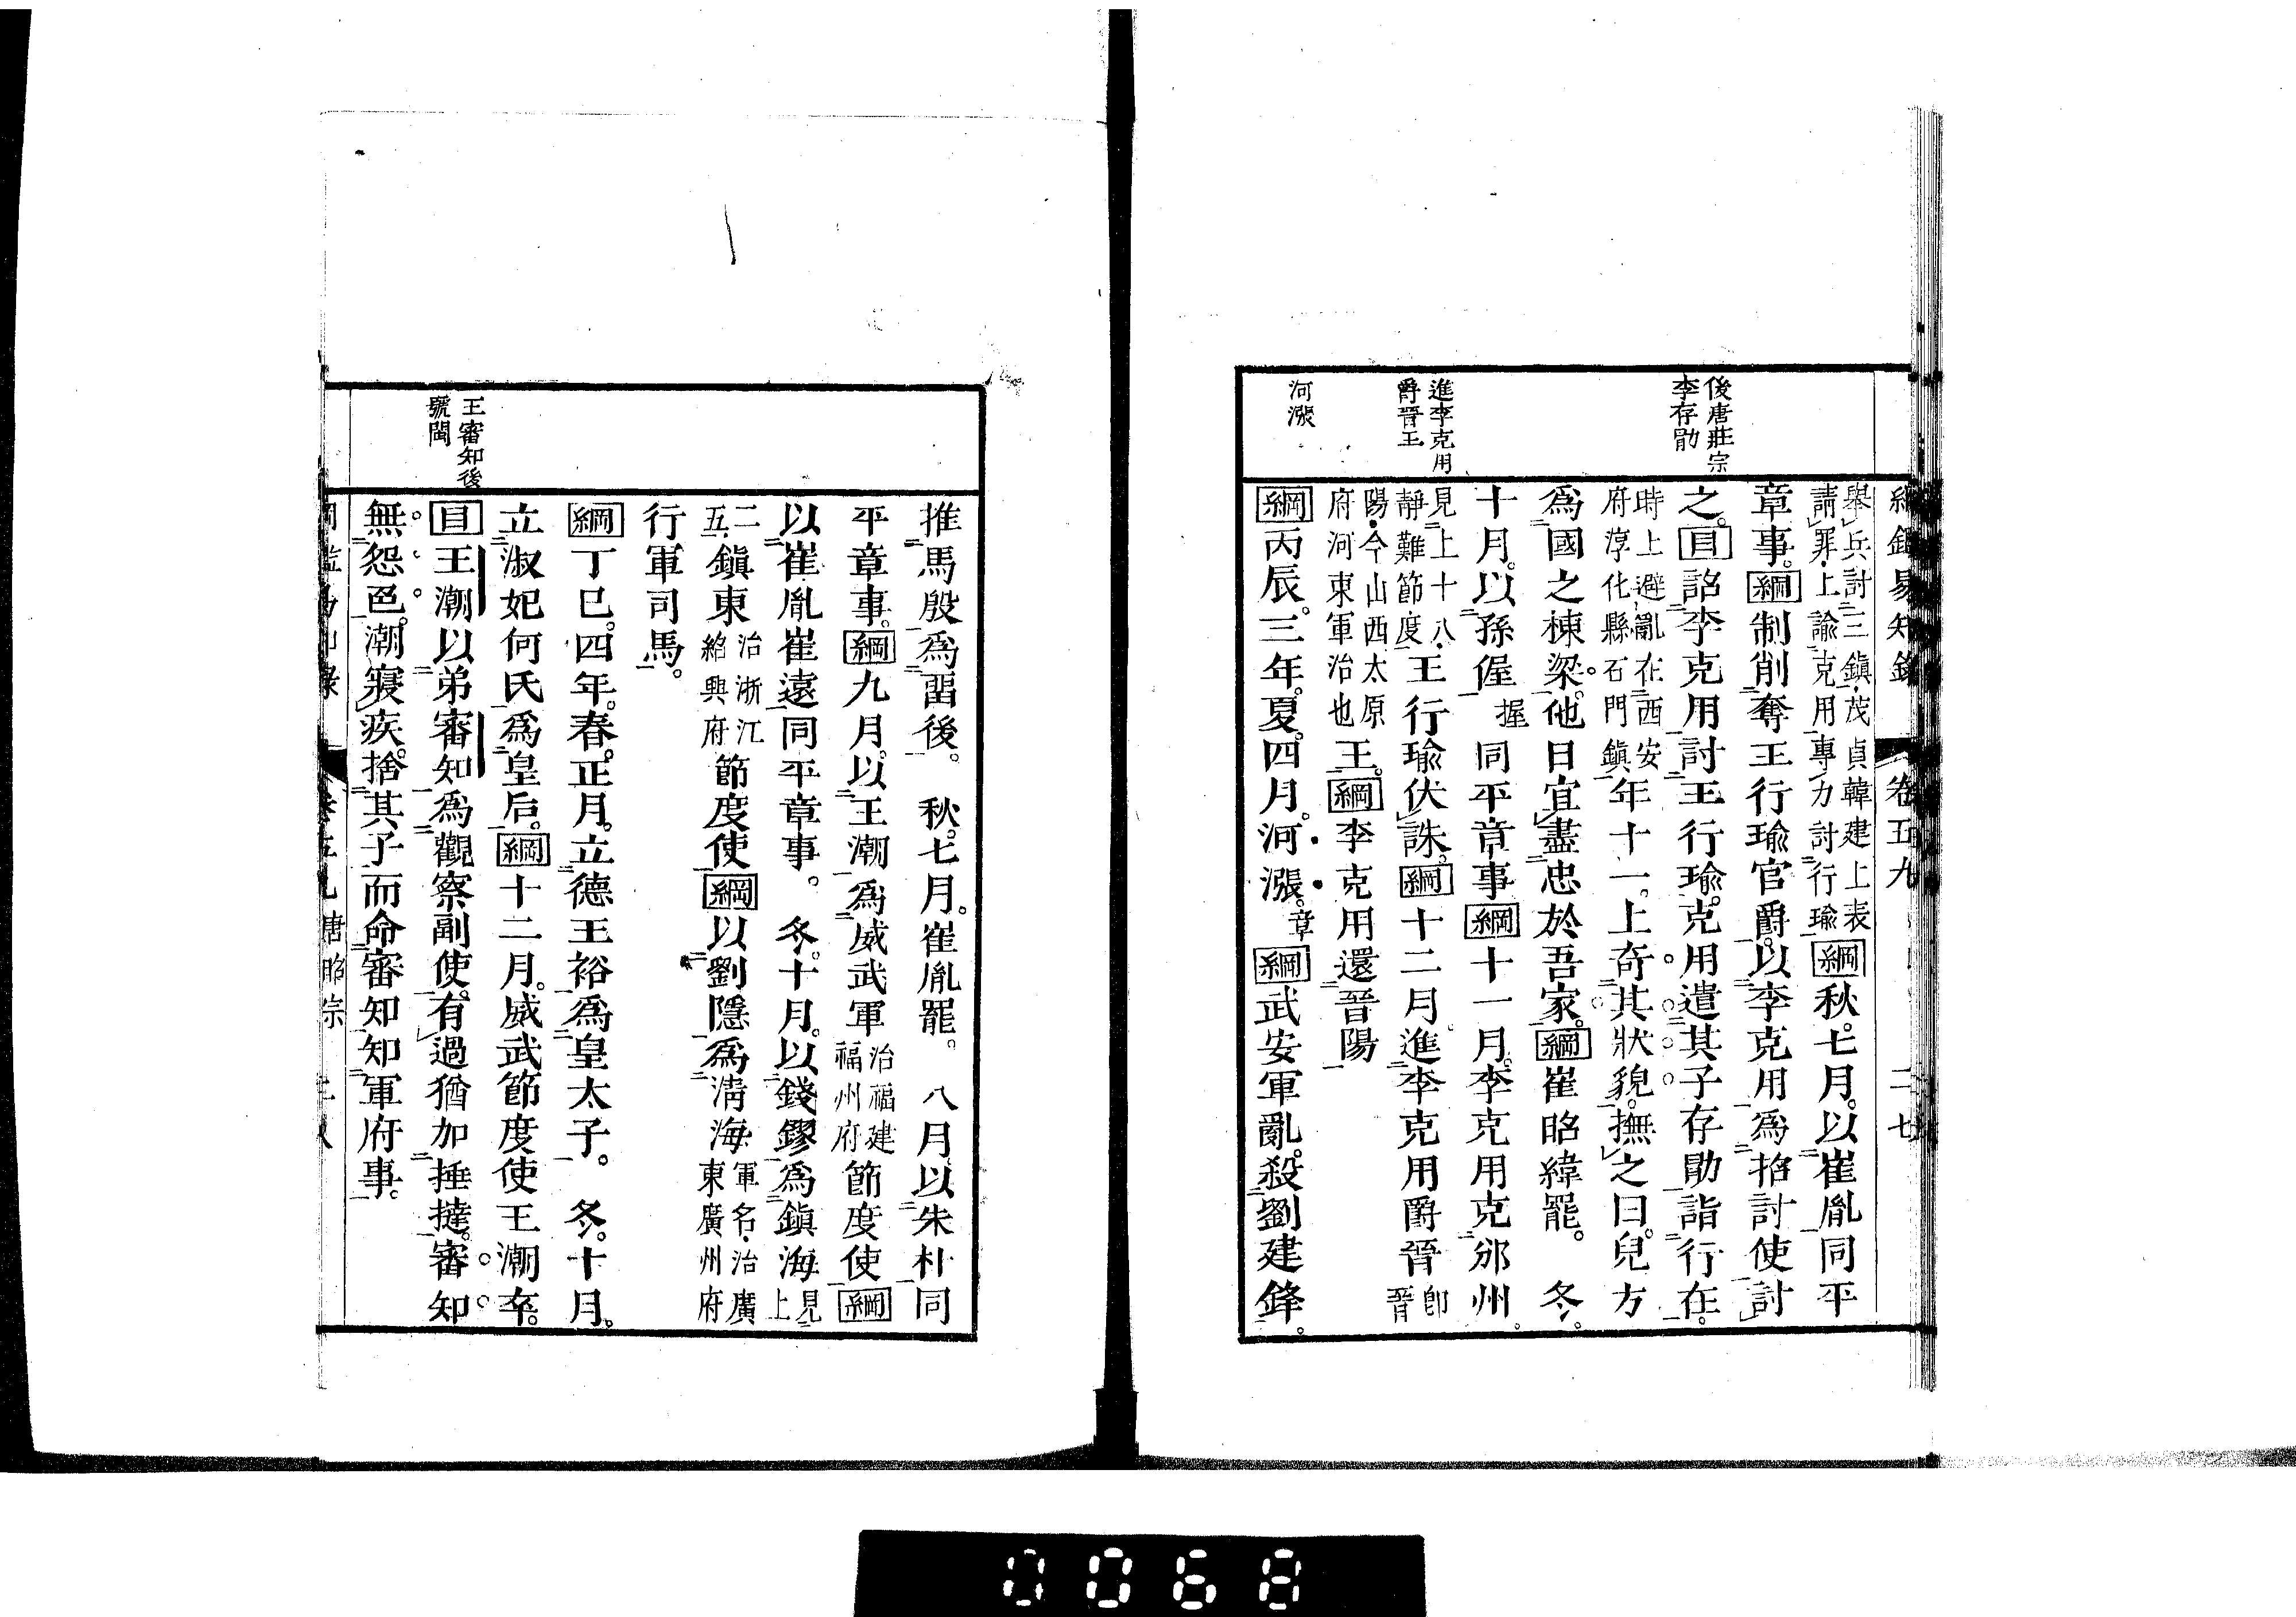 綱鑑易知錄 卷五九 二七
後唐莊宗
李存勖
進李克用
爵晉王
河漲
舉兵討三鎭茂貞韓建上表
請罪上諭克用專力討行瑜
綱秋七月以崔胤同平
章事綱制削奪王行瑜官爵以李克用爲招討使討
之目詔李克用討王行瑜克用遣其子存勖詣行在
時上避亂在西安
府淳化縣石門鎭
年十一上奇其狀貌撫之曰兒方
爲國之棟梁他日宜盡忠於吾家綱崔昭緯罷 冬
十月以孫偓握同平章事綱十一月李克用克邠州
見上十八
靜難節度
王行瑜伏誅綱十二月進李克用爵晉
卽晉
陽今山西太原
府河東軍治也
王綱李克用還晉陽
綱丙辰三年夏四月河漲章綱武安軍亂殺劉建鋒
王審知後
號閩
推馬殷爲畱後 秋七月崔胤罷 八月以朱朴同
平章事綱九月以王潮爲威武軍
治福建
福州府
節度使綱
以崔胤崔遠同平章事 冬十月以錢鏐爲鎭海
見上
二五
鎭東
治浙江
紹興府
節度使綱以劉隱爲淸海
軍名治廣
東廣州府
行軍司馬
綱丁巳四年春正月立德王裕爲皇太子 冬十月
立淑妃何氏爲皇后綱十二月威武節度使王潮卒
目王潮以弟審知爲觀察副使有過猶加捶撻審知
無怨色潮寢疾捨其子而命審知知軍府事
唐昭宗
0068